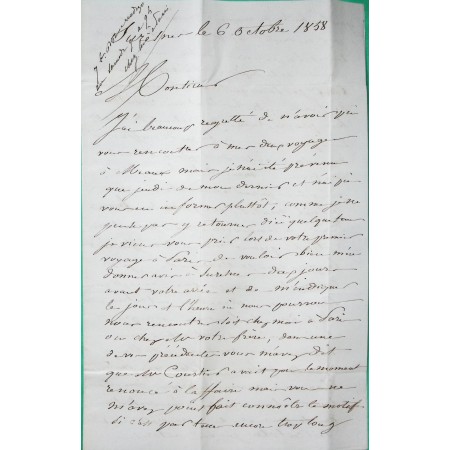 Suresnes le 6 Octobre 1858
Monsieur
J'ai beaucoup regretté de n'avoir pu
vous rencontrer à mes deux voyage
à Meaux mais je n'ai été prevenu
que jeudi de mon dernier et n'ai pu
vous en informer plustôt; comme je ne
pense pas y retourner d'ici quelque tems
je viens vous prier lors de votre premier
voyage à Paris de vouloir bien m'en
donner avis à Suresnes deux jours
avant votre arivé et de m'indiquer
le jour et l'heure où nous pourrons
nous rencontrer soit chez moi à Paris
ou chez Mr votre frère, dans une
de vos précédentes vous m'avez dit
que Mr Courtier avait pour le moment
renoncé à laffaire mais vous ne
m'avez point fait connaître le motif
si ce n'est pas tur encore trop long